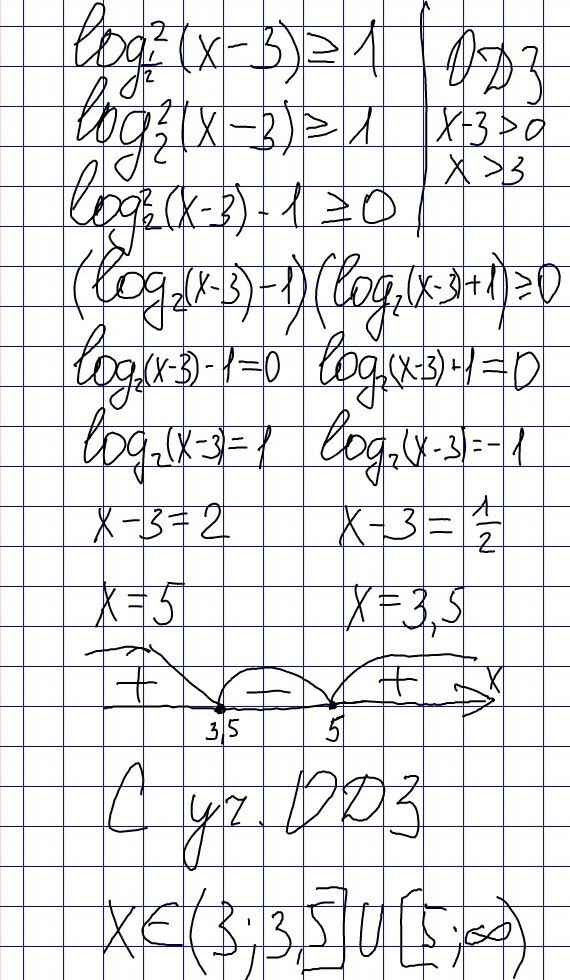 log²_{1/2}(x-3) ≥ 1
ОДЗ
log²₂(x-3) ≥ 1
x-3>0
x>3
log²₂(x-3)-1 ≥ 0
(log₂(x-3)-1)(log₂(x-3)+1) ≥ 0
log₂(x-3)-1=0 log₂(x-3)+1=0
log₂(x-3)=1 log₂(x-3)=-1
x-3=2 x-3=1/2
x=5 x=3,5
+ - + x
3,5 5
С уч. ОДЗ
x∈(3;3,5]∪[5;∞)